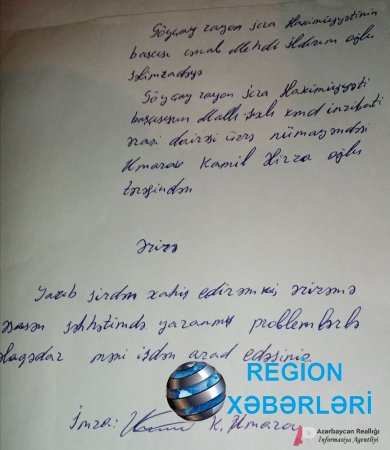 Göyçay rayon İcra Hakimiyyətinin
başçısı cənab Mehdi İldırım oğlu
Səlimzadəyə
Göyçay rayon İcra Hakimiyyəti
başçısının Mallı Şıxlı kənd inzibati
ərazi dairəsi üzrə nümayəndəsi
Umarov Kamil Mirzə oğlu
tərəfindən
Ərizə
Yazıb sizdən xahiş edirəm ki, ərizəmə
əsasən səhhətimdə yaranmış problemlərlə
əlaqədar məni işdən azad edəsiniz.
İmza: K. Umarov
REGION
XƏBƏRLƏRİ
Azərbaycan Reallığı
İnformasiya Agentliyi